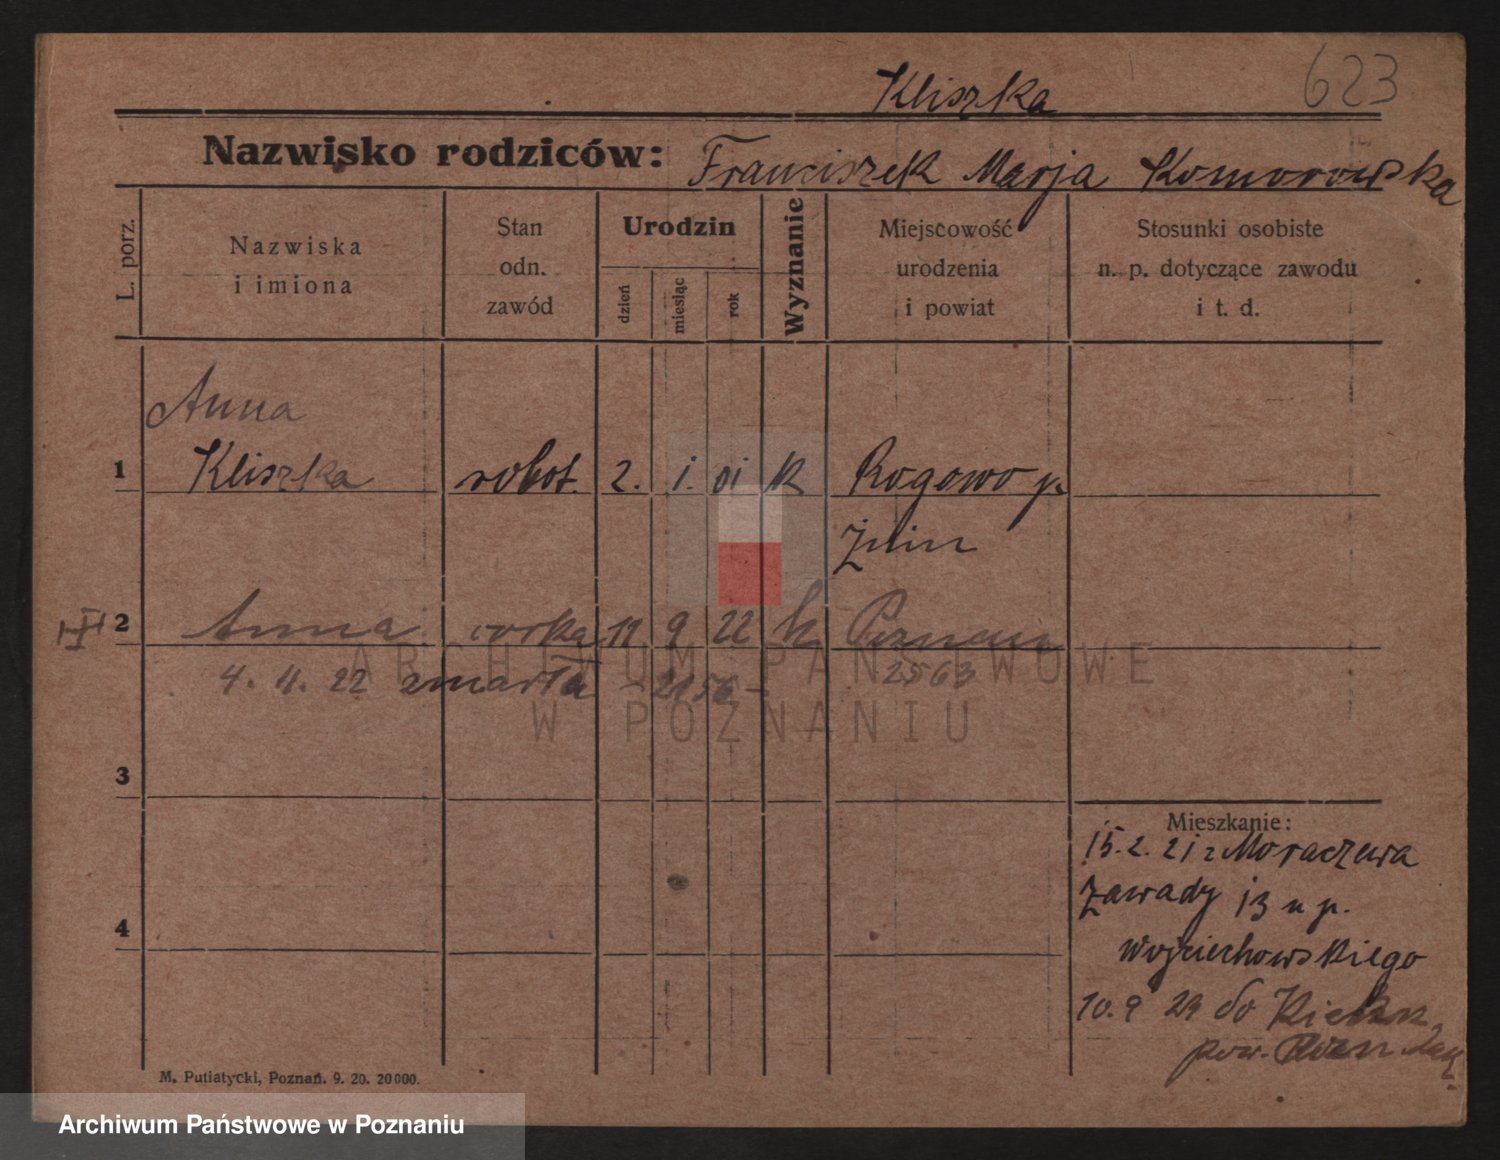 623
Kliszka
Nazwisko rodziców: Franciszek Marja Komorowska
L. porz.
Nazwiska i imiona
Stan odn. zawód
Urodzin
dzień
miesiąc
rok
Wyznanie
Miejscowość urodzenia i powiat
Stosunki osobiste n. p. dotyczące zawodu i t. d.
Anna
1 Kliszka robot. 2. 1. 01 k Rogowo p.
Żnin
2 Anna córka 19 9 22 k Poznań
4. 11. 22 zmarła 2563
ARCHIWUM PAŃSTWOWE
W POZNANIU
3
Mieszkanie:
15.2. 21 z Moraczewa
Zawady 13 u p.
Wojciechowskiego
4
10. 9 23 do
pow.
M. Putiatycki, Poznań. 9. 20. 20000.
Archiwum Państwowe w Poznaniu